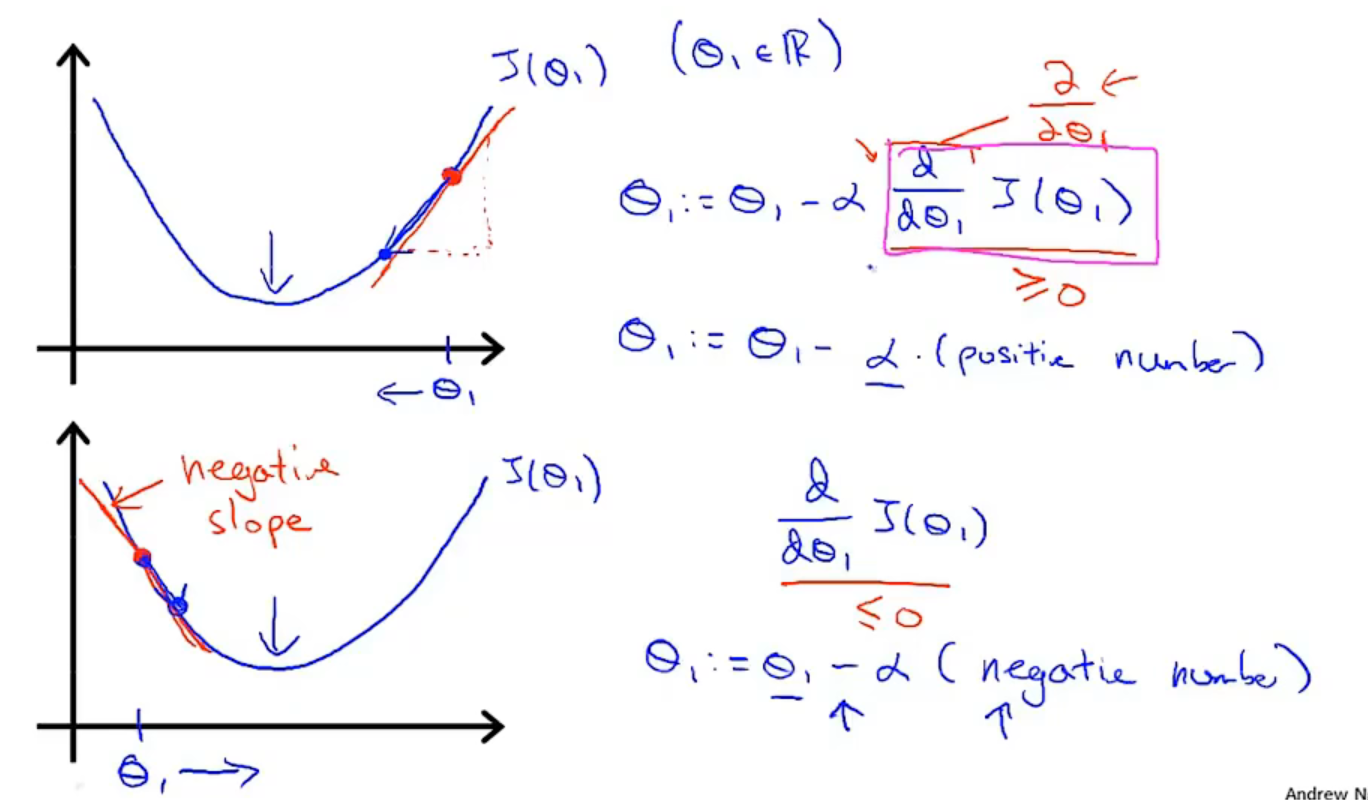 J(θ₁) (θ₁ ∈ ℝ)
∂ ←
∂θ₁
θ₁ := θ₁ - α d/dθ₁ J(θ₁)
≥ 0
θ₁ := θ₁ - α · (positive number)
← θ₁
negative
slope
J(θ₁)
d/dθ₁ J(θ₁)
≤ 0
θ₁ := θ₁ - α (negative number)
θ₁ →
Andrew N